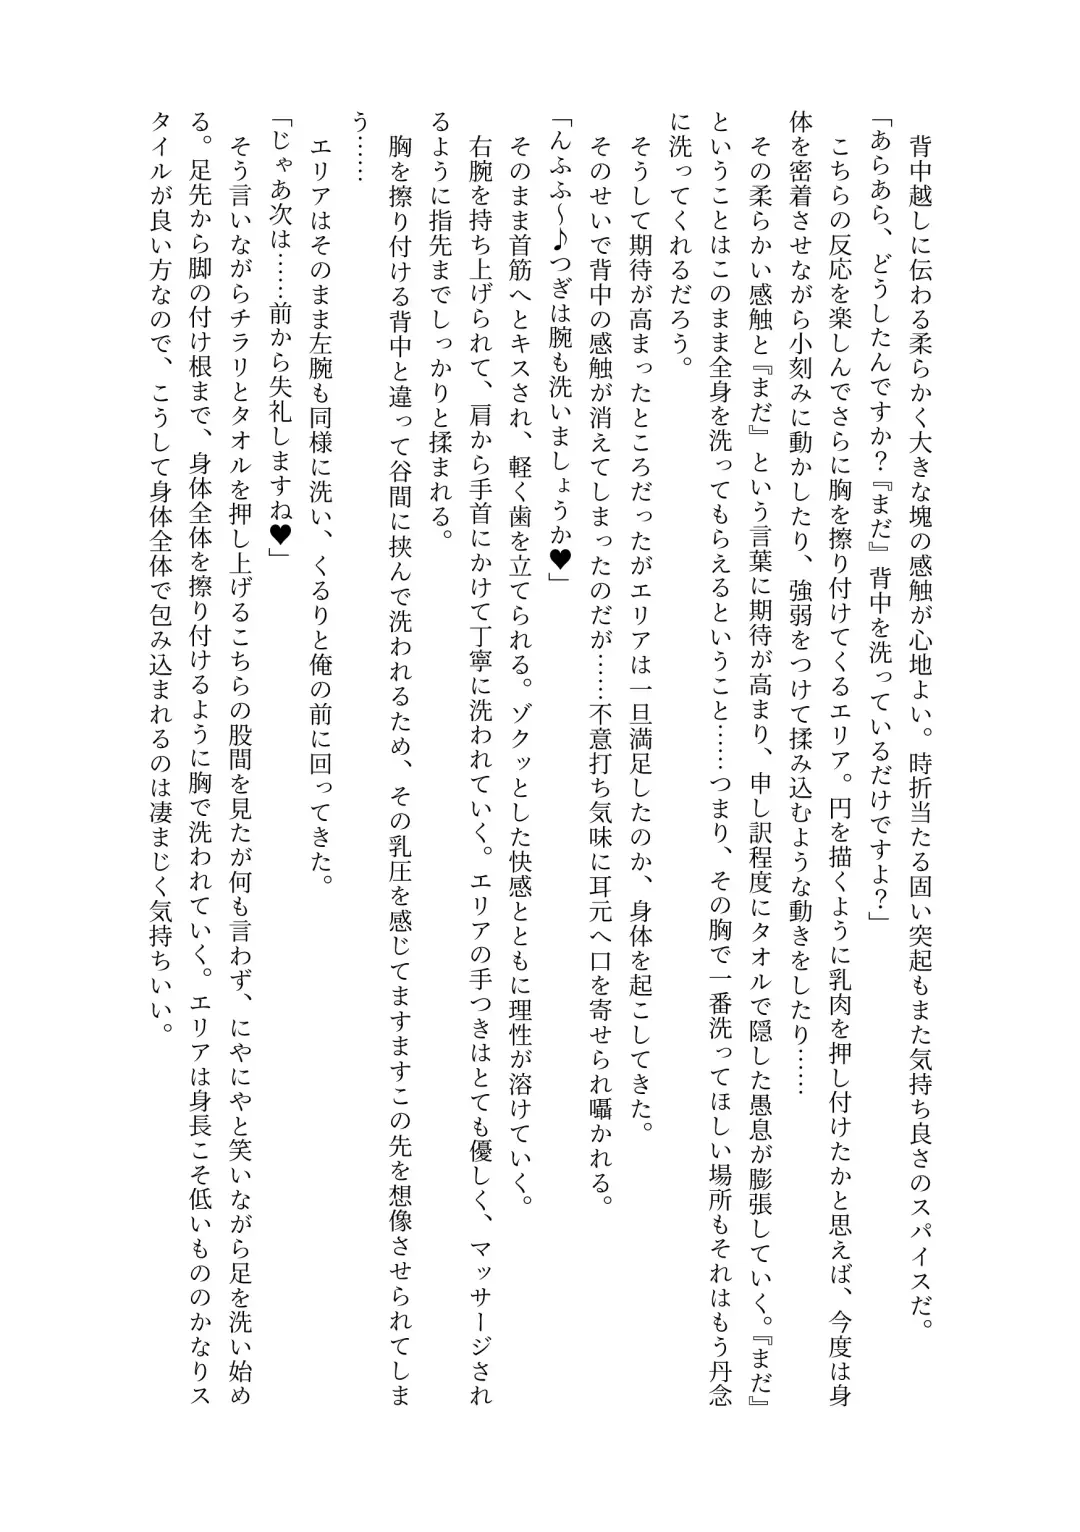 背中越しに伝わる柔らかく大きな塊の感触が心地よい。時折当たる固い突起もまた気持ち良さのスパイスだ。
「あらあら、どうしたんですか？『まだ』背中を洗っているだけですよ？」
こちらの反応を楽しんでさらに胸を擦り付けてくるエリア。円を描くように乳肉を押し付けたかと思えば、今度は身
体を密着させながら小刻みに動かしたり、強弱をつけて揉み込むような動きをしたり……
その柔らかい感触と『まだ』という言葉に期待が高まり、申し訳程度にタオルで隠した愚息が膨張していく。『まだ』
ということはこのまま全身を洗ってもらえるということ……つまり、その胸で一番洗ってほしい場所もそれはもう丹念
に洗ってくれるだろう。
そうして期待が高まったところだったがエリアは一旦満足したのか、身体を起こしてきた。
そのせいで背中の感触が消えてしまったのだが……不意打ち気味に耳元へ口を寄せられ囁かれる。
「んふふ～♪つぎは腕も洗いましょうか♥」
そのまま首筋へとキスされ、軽く歯を立てられる。ゾクッとした快感とともに理性が溶けていく。
右腕を持ち上げられて、肩から手首にかけて丁寧に洗われていく。エリアの手つきはとても優しく、マッサージされ
るように指先までしっかりと揉まれる。
胸を擦り付ける背中と違って谷間に挟んで洗われるため、その乳圧を感じてますますこの先を想像させられてしま
う……
エリアはそのまま左腕も同様に洗い、くるりと俺の前に回ってきた。
「じゃあ次は……前から失礼しますね♥」
そう言いながらチラリとタオルを押し上げるこちらの股間を見たが何も言わず、にやにやと笑いながら足を洗い始め
る。足先から脚の付け根まで、身体全体を擦り付けるように胸で洗われていく。エリアは身長こそ低いもののかなりス
タイルが良い方なので、こうして身体全体で包み込まれるのは凄まじく気持ちいい。